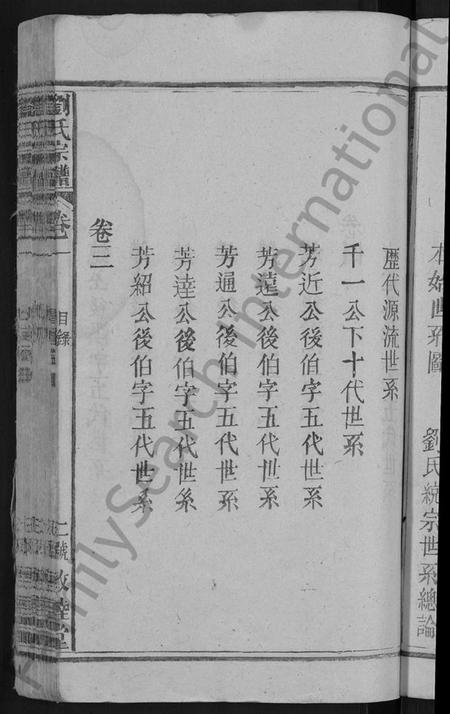 本始世系圖　劉氏統宗世系總論
歷代源流世系
千一公下十代世系
芳近公後伯字五代世系
芳遠公後伯字五代世系
芳通公後伯字五代世系
芳達公後伯字五代世系
芳紹公後伯字五代世系
卷三
劉氏宗譜　卷一　目錄　二號　敦睦堂
FamilySearch International